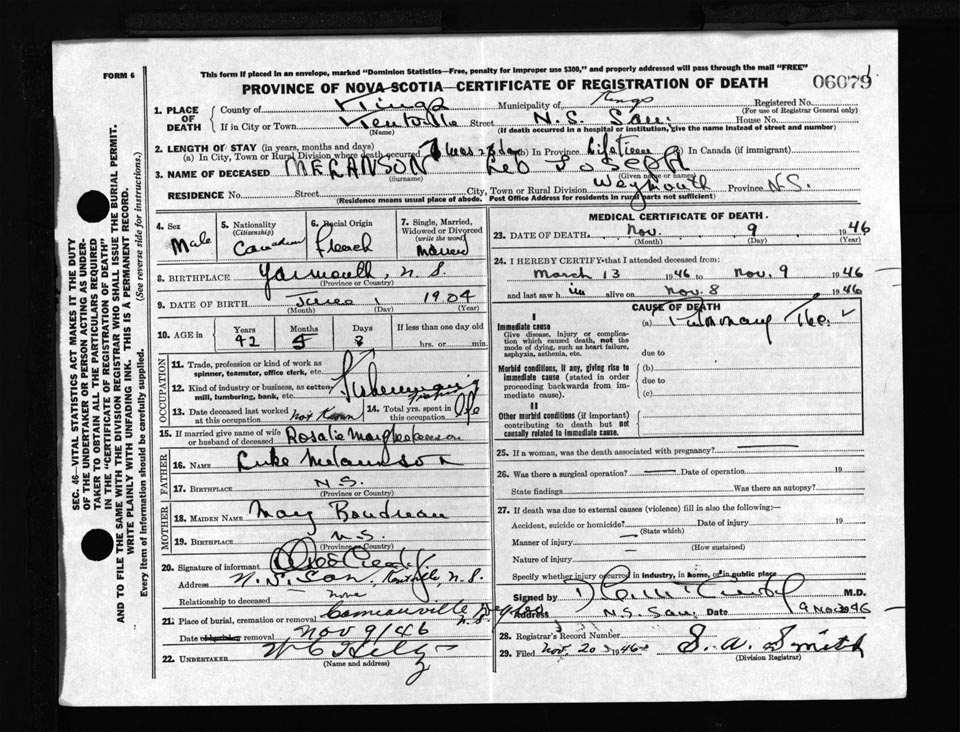 FORM 6
This form if placed in an envelope, marked "Dominion Statistics—Free, penalty for improper use $300," and properly addressed will pass through the mail "FREE"
PROVINCE OF NOVA SCOTIA—CERTIFICATE OF REGISTRATION OF DEATH
06079
SEC. 46—VITAL STATISTICS ACT MAKES IT THE DUTY
OF THE UNDERTAKER OR PERSON ACTING AS UNDER-
TAKER TO OBTAIN ALL THE PARTICULARS REQUIRED
IN THE "CERTIFICATE OF REGISTRATION OF DEATH"
AND TO FILE THE SAME WITH THE DIVISION REGISTRAR WHO SHALL ISSUE THE BURIAL PERMIT.
WRITE PLAINLY WITH UNFADING INK. THIS IS A PERMANENT RECORD.
Every item of Information should be carefully supplied. (See reverse side for instructions.)
1. PLACE OF DEATH County of Kings Municipality of Kings Registered No.
(For use of Registrar General only)
If in City or Town Kentville Street N.S. San. House No.
(Name) (If death occurred in a hospital or institution, give the name instead of street and number)
2. LENGTH OF STAY (in years, months and days)
(a) In City, Town or Rural Division where death occurred In Province Lifetime (c) In Canada (if immigrant)
3. NAME OF DECEASED MELANSON Leo Joseph
(Surname) (Given name or names)
RESIDENCE No. Street City, Town or Rural Division Weymouth Province N.S.
(Residence means usual place of abode. Post Office Address for residents in rural parts not sufficient)
4. Sex Male
5. Nationality (Citizenship) Canadian
6. Racial Origin French
7. Single, Married, Widowed or Divorced (write the word) Married
8. BIRTHPLACE Yarmouth, N.S.
(Province or Country)
9. DATE OF BIRTH June 1 1904
(Month) (Day) (Year)
10. AGE in Years Months Days If less than one day old
42 5 8 hrs. or min.
OCCUPATION
11. Trade, profession or kind of work as spinner, teamster, office clerk, etc. Fisherman
12. Kind of industry or business, as cotton mill, lumbering, bank, etc. Fishing
13. Date deceased last worked at this occupation Not Known 14. Total yrs. spent in this occupation Life
15. If married give name of wife or husband of deceased Rosalie
FATHER
16. NAME Luke Melanson
17. BIRTHPLACE N.S.
(Province or Country)
MOTHER
18. MAIDEN NAME Mary Boudreau
19. BIRTHPLACE N.S.
(Province or Country)
20. Signature of informant
Address N.S. San, Kentville, N.S.
Relationship to deceased none
21. Place of burial, cremation or removal Comeauville N.S.
Date of burial or removal Nov 9/46
22. UNDERTAKER
(Name and address)
MEDICAL CERTIFICATE OF DEATH.
23. DATE OF DEATH Nov. 9 1946
(Month) (Day) (Year)
24. I HEREBY CERTIFY that I attended deceased from:
March 13 1946 to Nov. 9 1946
and last saw him alive on Nov. 8 1946
CAUSE OF DEATH
I
Immediate cause (a) Pulmonary Tbc.
Give disease, injury or complica-
tion which caused death, not the
mode of dying, such as heart failure,
asphyxia, asthenia, etc. due to
Morbid conditions, if any, giving rise to (b)
immediate cause (stated in order due to
proceeding backwards from im-
mediate cause). (c)
II
Other morbid conditions (if important)
contributing to death but not
causally related to immediate cause.
25. If a woman, was the death associated with pregnancy?
26. Was there a surgical operation? Date of operation 19
State findings Was there an autopsy?
27. If death was due to external causes (violence) fill in also the following:—
Accident, suicide or homicide? Date of injury 19
(State which)
Manner of injury
(How sustained)
Nature of injury
Specify whether injury occurred in industry, in home, or in public place
Signed by M.D.
Address N.S. San. Date 9 Nov 1946
28. Registrar's Record Number
29. Filed Nov. 20 1946 S. W. Smith
(Division Registrar)